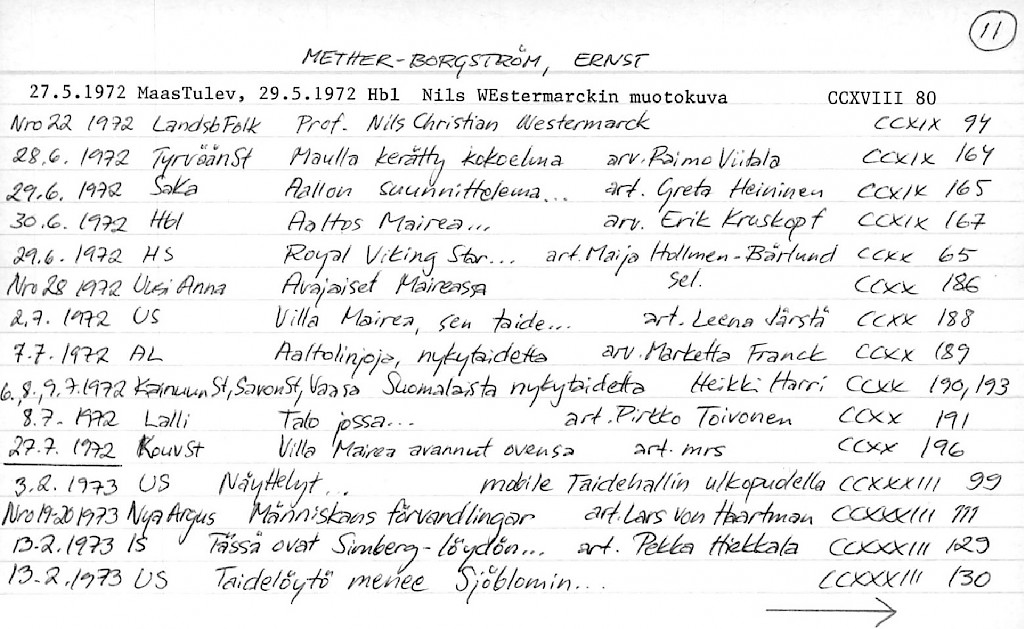 11
METHER-BORGSTRÖM, ERNST
27.5.1972 MaasTulev, 29.5.1972 Hbl Nils WEstermarckin muotokuva CCXVIII 80
Nro 22 1972 LandsbFolk Prof. Nils Christian Westermarck CCXIX 94
28.6. 1972 TyrväänSt Maulla kerätty kokoelma arv. Raimo Viitala CCXIX 164
29.6. 1972 SaKa Aallon suunnittelema... art. Greta Heininen CCXIX 165
30.6. 1972 Hbl Aaltos Mairea... arv. Erik Kruskopf CCXIX 167
29.6. 1972 HS Royal Viking Star... art. Maija Hollmen-Bärlund CCXX 65
Nro 28 1972 Uusi Anna Avajaiset Maireassa sel. CCXX 186
2.7. 1972 US Villa Mairea, sen taide... art. Leena Järstä CCXX 188
7.7. 1972 AL Aaltolinjoja, nykytaidetta arv. Marketta Franck CCXX 189
6., 8., 9.7.1972 KainuunSt, SavonSt, Vaasa Suomalaista nykytaidetta Heikki Harri CCXX 190, 193
8.7. 1972 Lalli Talo jossa... art. Pirkko Toivonen CCXX 191
27.7. 1972 KouvSt Villa Mairea avannut ovensa art. mrs CCXX 196
3.2. 1973 US Näyttelyt... mobile Taidehallin ulkopudella CCXXXIII 99
Nro 19-20 1973 Nya Argus Människans förvandlingar art. Lars von Haartman CCXXXIII 111
13.2.1973 IS Tässä ovat Simberg-löydön... art. Pekka Hiekkala CCXXXIII 129
13.2.1973 US Taidelöytö menee Sjöblomin... CCXXXIII 130